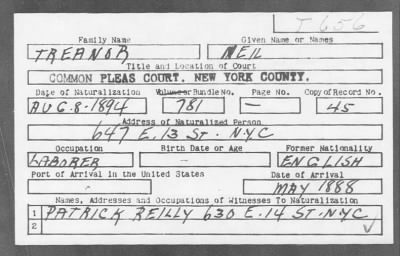 T 656
Family Name Given Name or Names
TREANOR NEIL
Title and Location of Court
COMMON PLEAS COURT, NEW YORK COUNTY.
Date of Naturalization Volume or Bundle No. Page No. Copy of Record No.
AUG. 8. 1894 781 — 45
Address of Naturalized Person
647 E. 13 ST. N.Y.C
Occupation Birth Date or Age Former Nationality
LABORER — ENGLISH
Port of Arrival in the United States Date of Arrival
- MAY 1888
Names, Addresses and Occupations of Witnesses To Naturalization
1 PATRICK REILLY 630 E. 14 ST. NYC
2